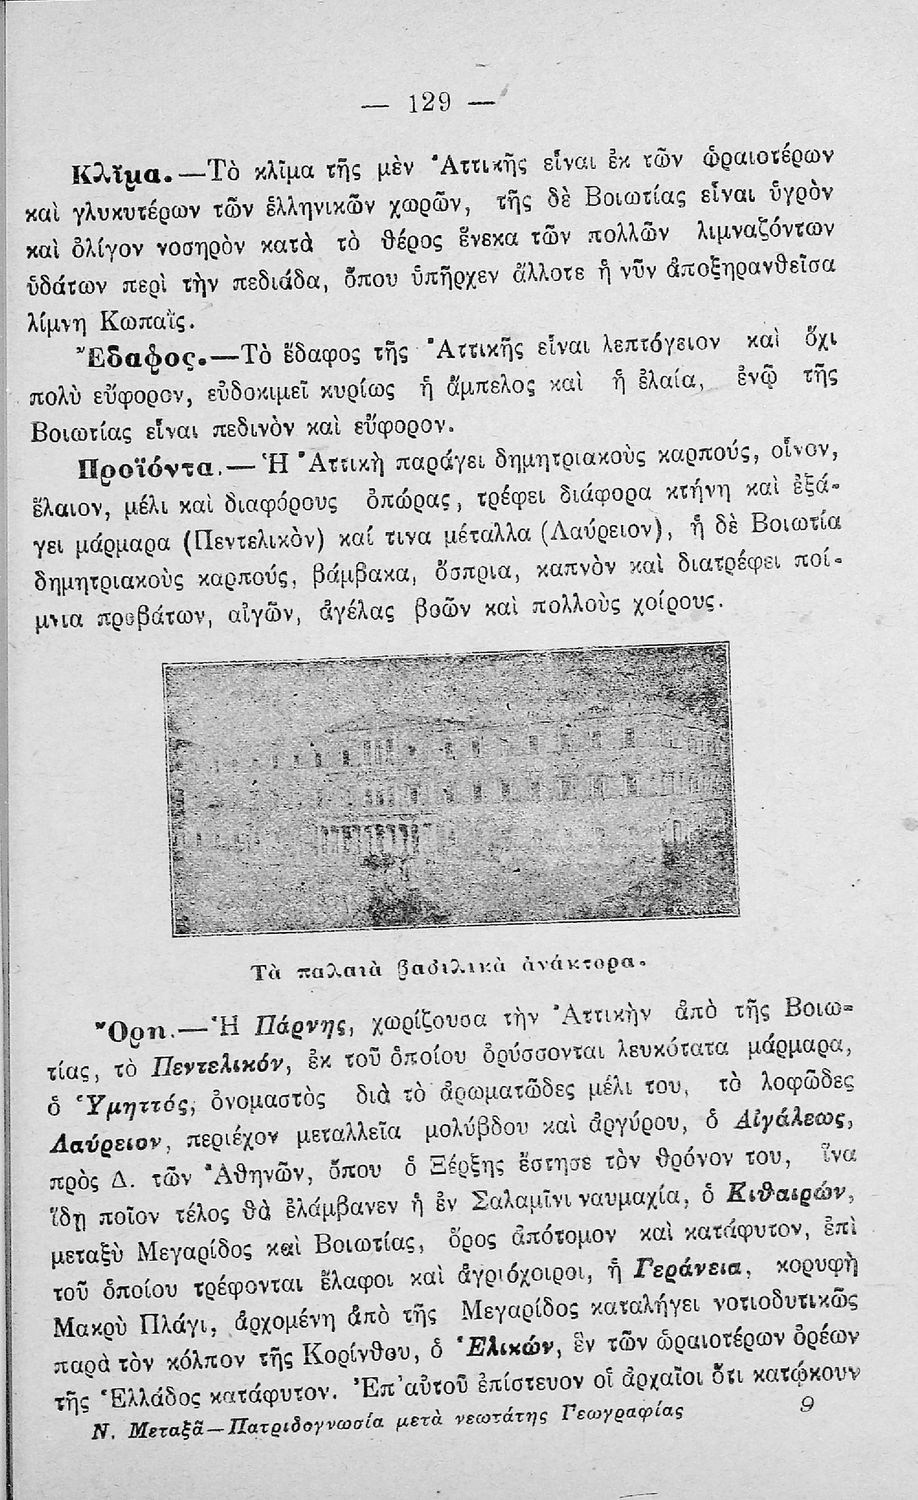 — 129 —
Κλῖμα.—Τὸ κλῖμα τῆς μὲν Ἀττικῆς εἶναι ἐκ τῶν ὡραιοτέρων
καὶ γλυκυτέρων τῶν ἑλληνικῶν χωρῶν, τῆς δὲ Βοιωτίας εἶναι ὑγρὸν
καὶ ὀλίγον νοσηρὸν κατὰ τὸ θέρος ἕνεκα τῶν πολλῶν λιμναζόντων
ὑδάτων περὶ τὴν πεδιάδα, ὅπου ὑπῆρχεν ἄλλοτε ἡ νῦν ἀποξηρανθεῖσα
λίμνη Κωπαΐς.
Ἔδαφος.—Τὸ ἔδαφος τῆς Ἀττικῆς εἶναι λεπτόγειον καὶ ὄχι
πολὺ εὔφορον, εὐδοκιμεῖ κυρίως ἡ ἄμπελος καὶ ἡ ἐλαία, ἐνῷ τῆς
Βοιωτίας εἶναι πεδινὸν καὶ εὔφορον.
Προϊόντα.—Ἡ Ἀττικὴ παράγει δημητριακοὺς καρπούς, οἶνον,
ἔλαιον, μέλι καὶ διαφόρους ὀπώρας, τρέφει διάφορα κτήνη καὶ ἐξά-
γει μάρμαρα (Πεντελικὸν) καί τινα μέταλλα (Λαύρειον), ἡ δὲ Βοιωτία
δημητριακοὺς καρπούς, βάμβακα, ὄσπρια, καπνὸν καὶ διατρέφει ποί-
μνια προβάτων, αἰγῶν, ἀγέλας βοῶν καὶ πολλοὺς χοίρους.
Τὰ παλαιὰ βασιλικὰ ἀνάκτορα.
Ὄρη.—Ἡ Πάρνης, χωρίζουσα τὴν Ἀττικὴν ἀπὸ τῆς Βοιω-
τίας, τὸ Πεντελικόν, ἐκ τοῦ ὁποίου ὀρύσσονται λευκότατα μάρμαρα,
ὁ Ὑμηττός, ὀνομαστὸς διὰ τὸ ἀρωματῶδες μέλι του, τὸ λοφῶδες
Λαύρειον, περιέχον μεταλλεῖα μολύβδου καὶ ἀργύρου, ὁ Αἰγάλεως,
πρὸς Δ. τῶν Ἀθηνῶν, ὅπου ὁ Ξέρξης ἔστησε τὸν θρόνον του, ἵνα
ἴδῃ ποῖον τέλος θὰ ἐλάμβανεν ἡ ἐν Σαλαμῖνι ναυμαχία, ὁ Κιθαιρών,
μεταξὺ Μεγαρίδος καὶ Βοιωτίας, ὄρος ἀπότομον καὶ κατάφυτον, ἐπὶ
τοῦ ὁποίου τρέφονται ἔλαφοι καὶ ἀγριόχοιροι, ἡ Γεράνεια, κορυφὴ
Μακρὺ Πλάγι, ἀρχομένη ἀπὸ τῆς Μεγαρίδος καταλήγει νοτιοδυτικῶς
παρὰ τὸν κόλπον τῆς Κορίνθου, ὁ Ἑλικών, ἓν τῶν ὡραιοτέρων ὀρέων
τῆς Ἑλλάδος κατάφυτον. Ἐπ' αὐτοῦ ἐπίστευον οἱ ἀρχαῖοι ὅτι κατῴκουν
Ν. Μεταξᾶ—Πατριδογνωσία μετὰ νεωτάτης Γεωγραφίας 9